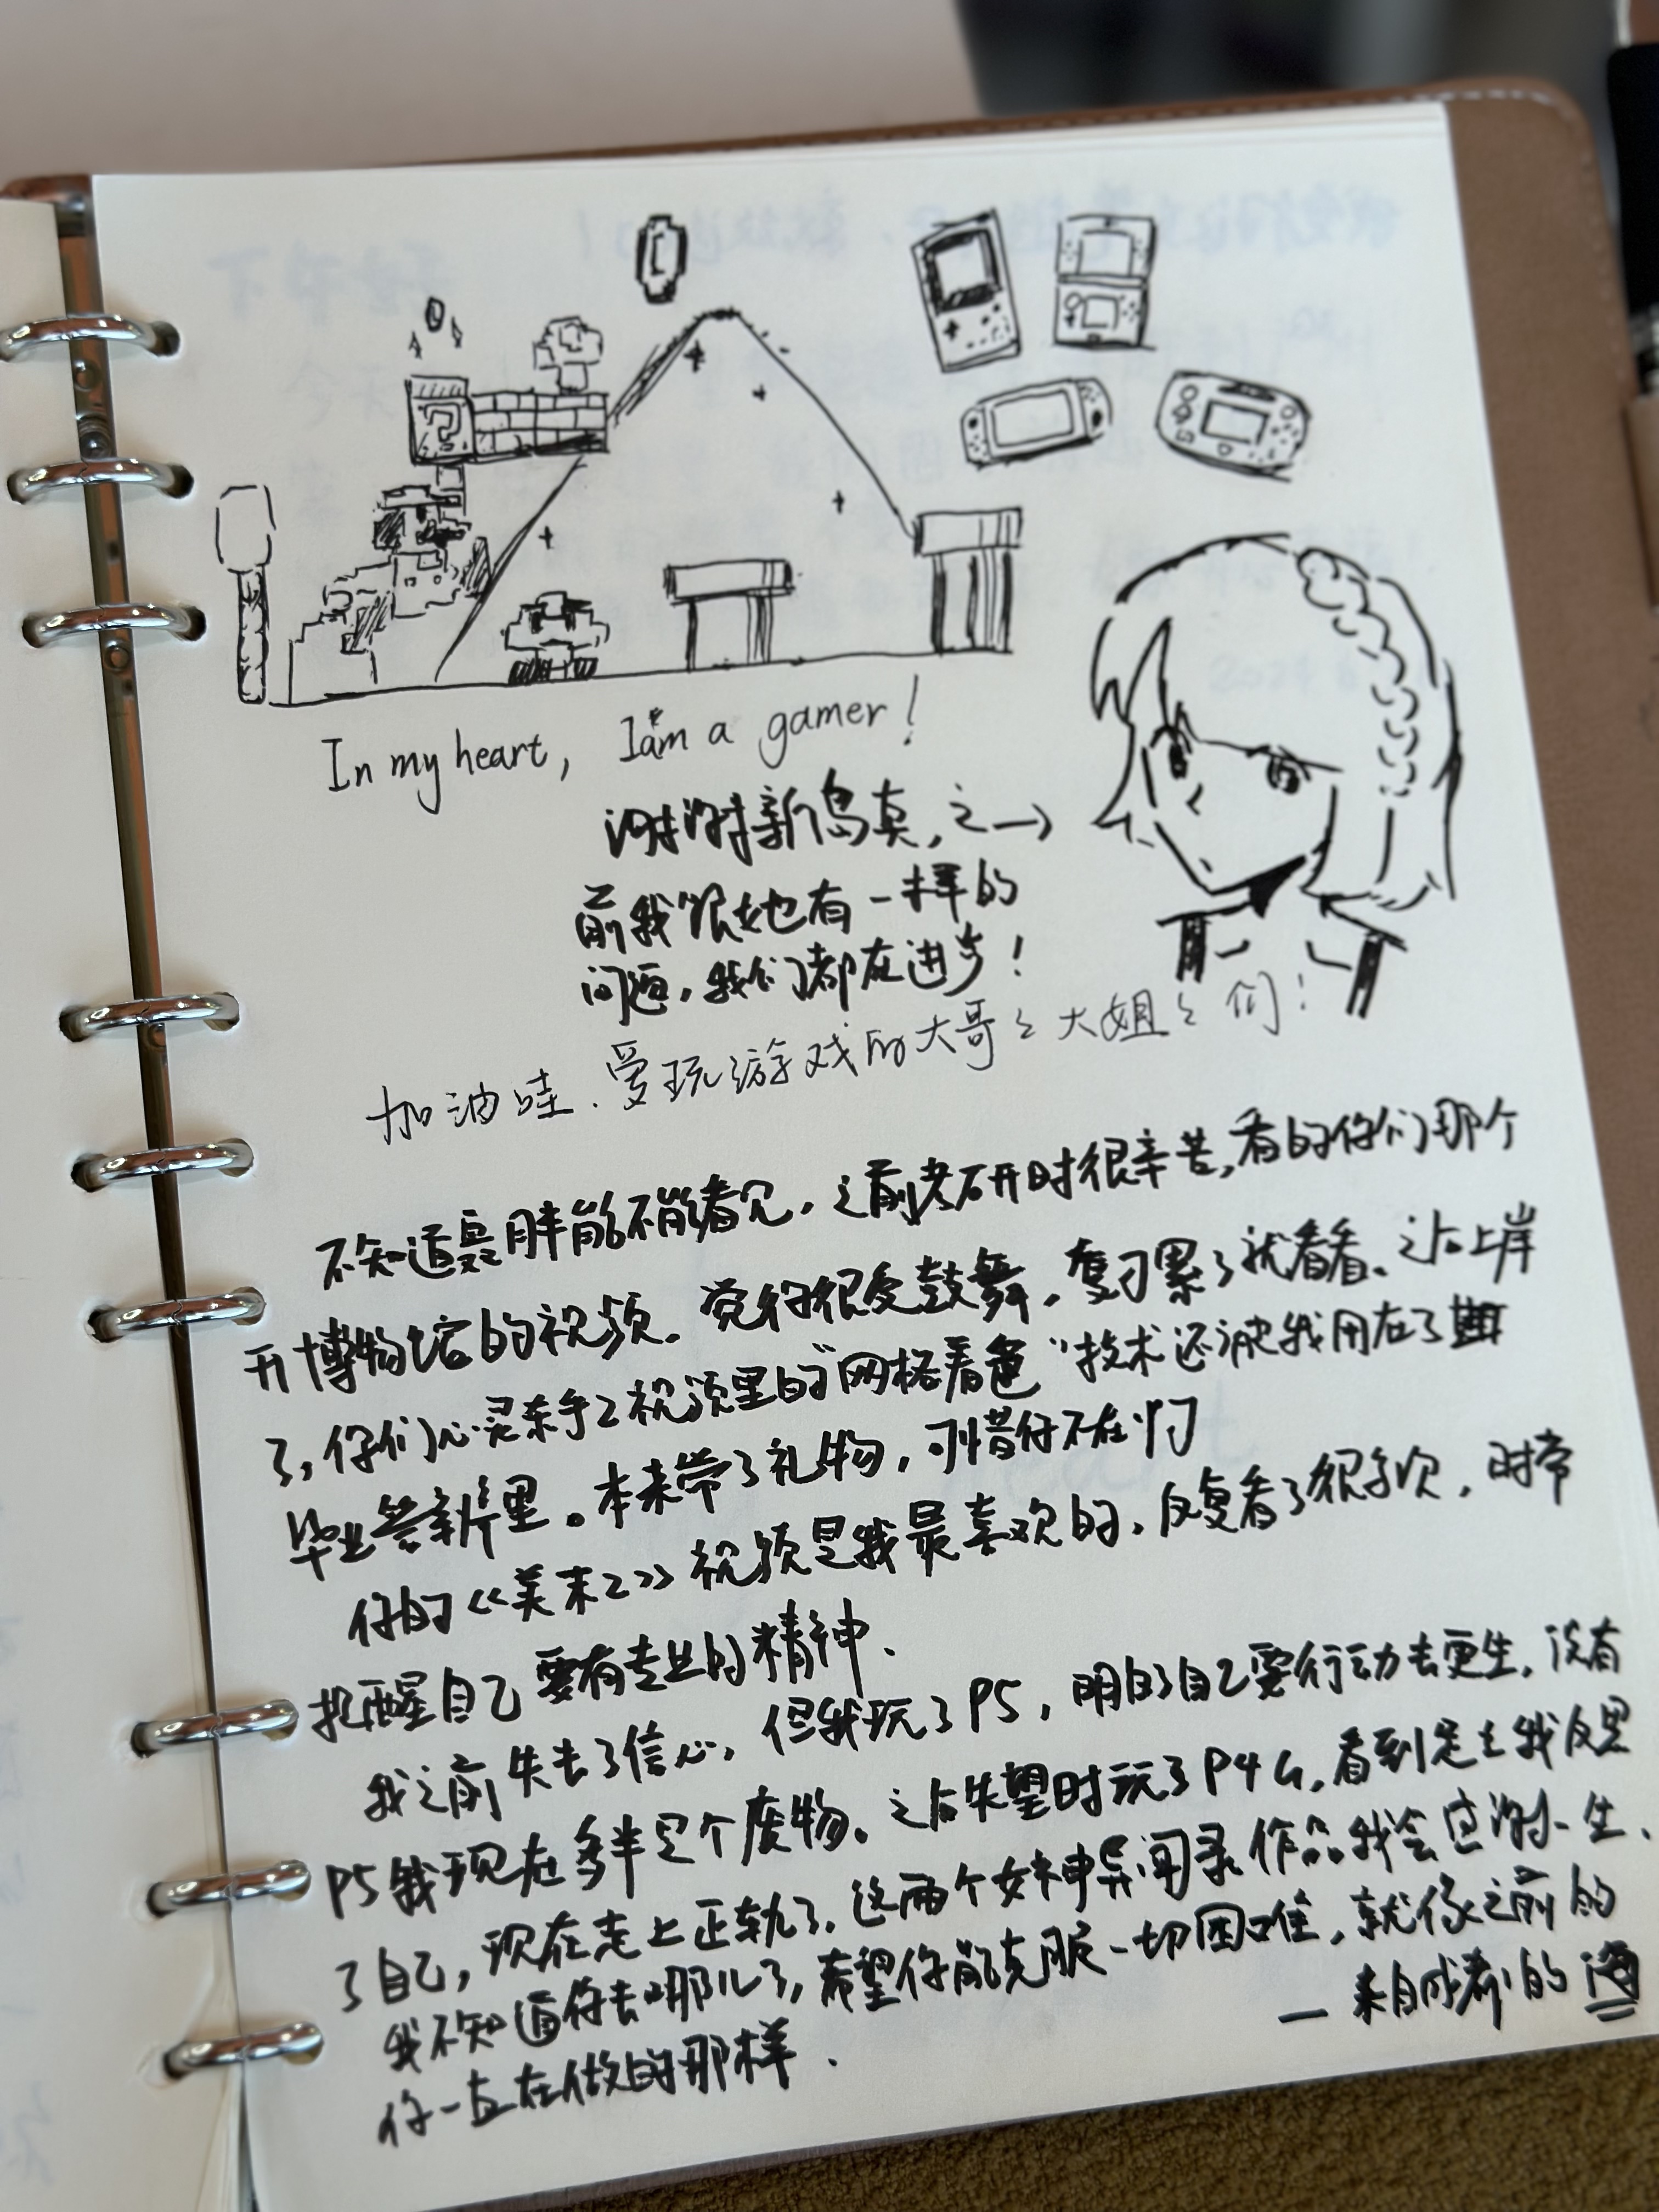 In my heart, I am a gamer!
谢谢新岛真，之→
前我跟她有一样的
问题，我们都在进步！
加油哇，爱玩游戏的大哥哥大姐姐们！
不知道聂胖能不能看见，之前考研时很辛苦，看的你们那个
开博物馆的视频。觉得很受鼓舞，复习累了就看看、之后上岸
了，你们心灵杀手2视频里的"网格着色"技术还让我用在了
毕业答辩里。本来带了礼物，可惜你不在
你的《美末2》视频是我最喜欢的，反复看了很多次，时常
提醒自己要有专业的精神、
我之前失去了信心，但我玩了P5，明白了自己要行动去更生，没有
P5我现在多半是个废物。之后失望时玩了P4G，看到足立我反思
了自己，现在走上正轨了，这两个女神异闻录作品我会感谢一生、
我不知道你去哪儿了，希望你能克服一切困难，就像之前的
你一直在做的那样．
— 来自成都的